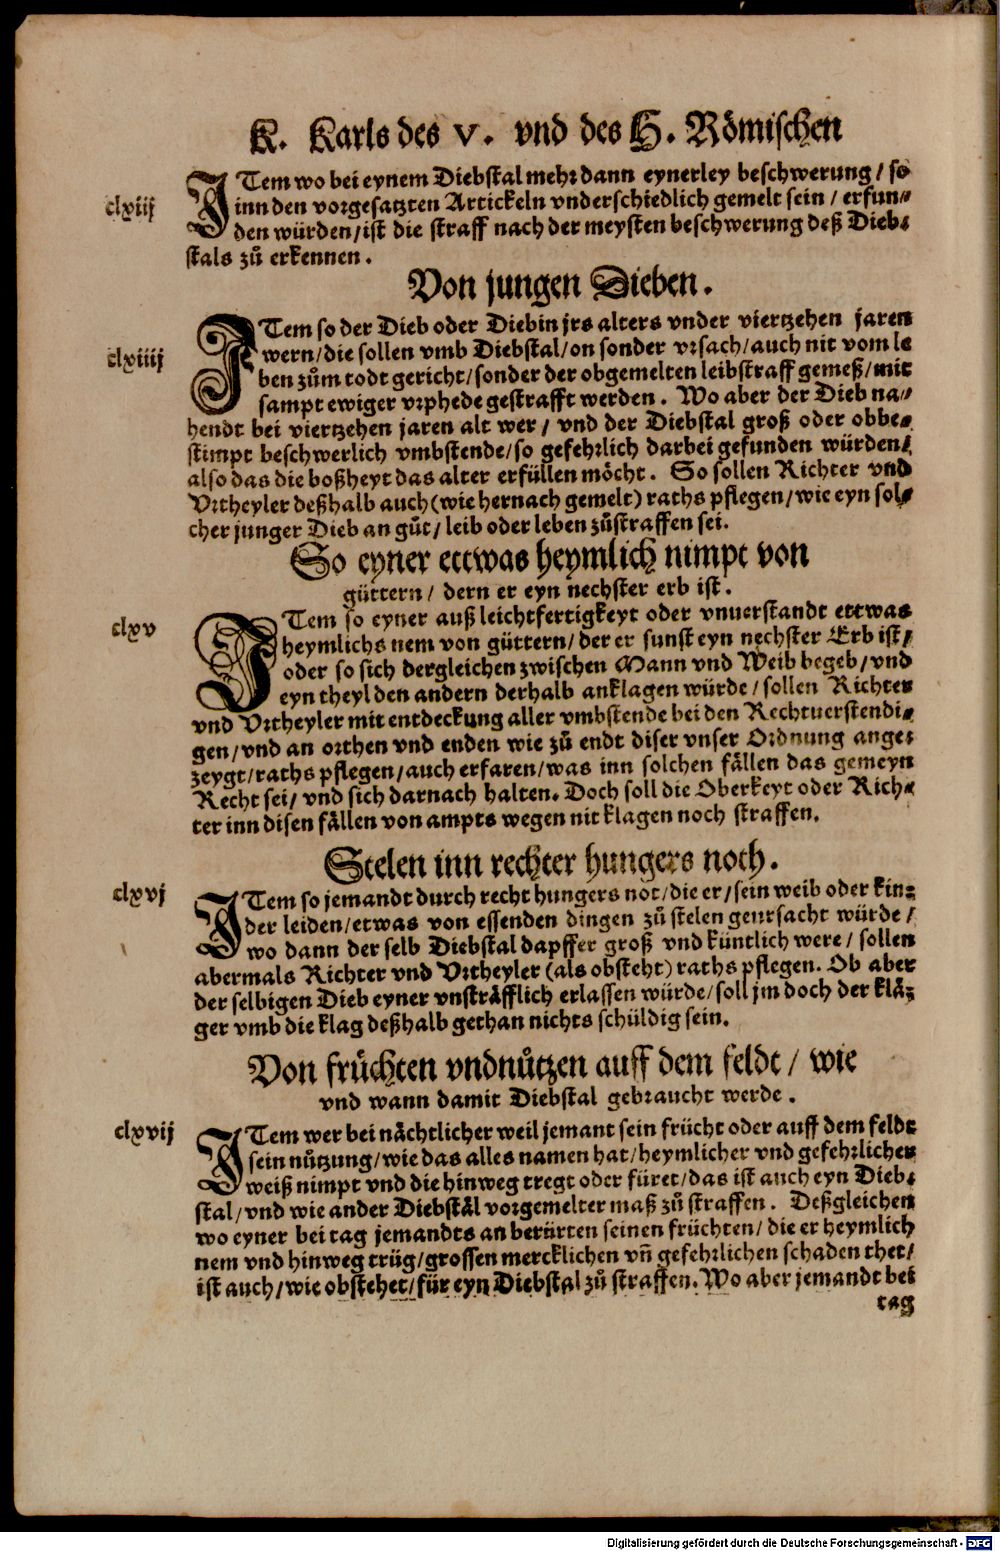 K. Karls des V. vnd des H. Römischen
clxiij
ITem wo bei eynem Diebstal mehr dann eynerley beschwerung / so
inn den vorgesatzten Artickeln vnderschiedlich gemelt sein / erfun⸗
den würden / ist die straff nach der meysten beschwerung deß Dieb⸗
stals zů erkennen.
Von jungen Dieben.
clxiiij
ITem so der Dieb oder Diebin jrs alters vnder viertzehen jaren
wern / die sollen vmb Diebstal / on sonder vrsach / auch nit vom le
ben zům todt gericht / sonder der obgemelten leibstraff gemeß / mit
sampt ewiger vrphede gestrafft werden. Wo aber der Dieb na⸗
hendt bei viertzehen jaren alt wer / vnd der Diebstal groß oder obbe⸗
stimpt beschwerlich vmbstende / so gefehrlich darbei gefunden würden /
also das die boßheyt das alter erfüllen möcht. So sollen Richter vnd
Vrtheyler deßhalb auch (wie hernach gemelt) raths pflegen / wie eyn sol⸗
cher junger Dieb an gůt / leib oder leben zůstraffen sei.
So eyner ettwas heymlich nimpt von
güttern / dern er eyn nechster erb ist.
clxv
ITem so eyner auß leichtfertigkeyt oder vnuerstandt ettwas
heymlichs nem von güttern / der er sunst eyn nechster Erb ist /
oder so sich dergleichen zwischen Mann vnd Weib begeb / vnd
eyn theyl den andern derhalb anklagen würde / sollen Richter
vnd Vrtheyler mit entdeckung aller vmbstende bei den Rechtuerstendi⸗
gen / vnd an orthen vnd enden wie zů endt diser vnser Ordnung ange⸗
zeygt / raths pflegen / auch erfaren / was inn solchen fällen das gemeyn
Recht sei / vnd sich darnach halten. Doch soll die Oberkeyt oder Rich⸗
ter inn disen fällen von ampts wegen nit klagen noch straffen.
Stelen inn rechter hungers noth.
clxvj
ITem so jemandt durch recht hungers not / die er / sein weib oder kin⸗
der leiden / etwas von essenden dingen zů stelen geursacht würde /
wo dann der selb Diebstal dapffer groß vnd küntlich were / sollen
abermals Richter vnd Vrtheyler (als obsteht) raths pflegen. Ob aber
der selbigen Dieb eyner vnsträfflich erlassen würde / soll jm doch der kläz
ger vmb die klag deßhalb gethan nichts schüldig sein.
Von früchten vndnützen auff dem feldt / wie
vnd wann damit Diebstal gebraucht werde.
clxvij
ITem wer bei nächtlicher weil jemant sein frücht oder auff dem feldt
sein nützung / wie das alles namen hat / heymlicher vnd gefehrlicher
weiß nimpt vnd die hinweg tregt oder füret / das ist auch eyn Dieb⸗
stal / vnd wie ander Diebstäl vorgemelter maß zů straffen. Deßgleichen
wo eyner bei tag jemandts an berürten seinen früchten / die er heymlich
nem vnd hinweg trüg / grossen mercklichen vn̄ gefehrlichen schaden thet /
ist auch / wie obstehet / für eyn Diebstal zů straffen. Wo aber jemandt bei
tag
Digitalisierung gefördert durch die Deutsche Forschungsgemeinschaft - DFG